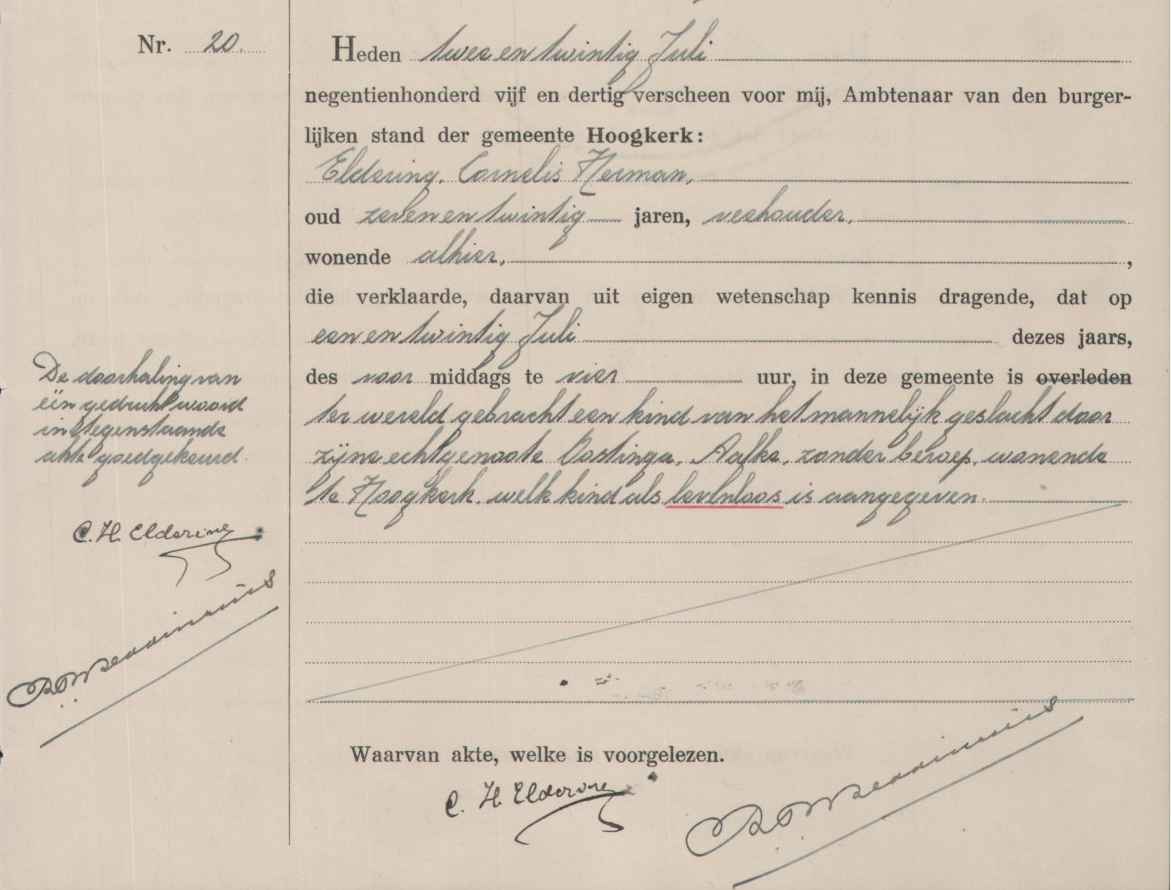 Nr. 20.
Heden twee en twintig Juli
negentienhonderd vijf en dertig verscheen voor mij, Ambtenaar van den burger-
lijken stand der gemeente Hoogkerk:
Eldering, Cornelis Herman,
oud zeven en twintig jaren, veehouder,
wonende alhier,
die verklaarde, daarvan uit eigen wetenschap kennis dragende, dat op
een en twintig Juli dezes jaars,
des voor middags te vier uur, in deze gemeente is overleden
ter wereld gebracht een kind van het mannelijk geslacht door
zijne echtgenoote Oostinga, Aafke, zonder beroep, wonende
te Hoogkerk, welk kind als levenloos is aangegeven.
De doorhaling van
één gedrukt woord
in tegenstaande
akte goedgekeurd.
C. H. Eldering
Waarvan akte, welke is voorgelezen.
C. H. Eldering